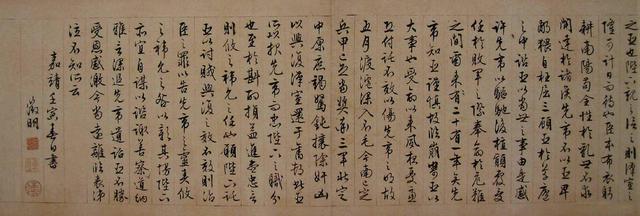 之臣也陛下親之信之則漢室之
隆可計日而待也臣本布衣躬
耕南陽苟全性命於亂世不求
聞達於諸侯先帝不以臣卑
鄙猥自枉屈三顧臣於草廬
之中諮臣以當世之事由是感激
許先帝以驅馳後值傾覆受
任於敗軍之際奉命於危難
之間爾來二十有一年矣先帝
知臣謹慎故臨崩寄臣以
大事也受命以來夙夜憂歎
恐付託不效以傷先帝之明故
五月渡瀘深入不毛今南方已定
兵甲已足當獎率三軍北定
中原庶竭駑鈍攘除奸凶
以興復漢室還于舊都此臣
所以報先帝而忠陛下之職分
也至於斟酌損益進盡忠言
則攸之禕允之任也願陛下託
臣以討賊興復之效不效則治
臣之罪以告先帝之靈責攸
之禕允之咎以彰其慢陛下
亦宜自謀以諮諏善道察納
雅言深追先帝遺詔臣不勝
受恩感激今當遠離臨表涕
泣不知所云
嘉靖壬寅春日書
徵明